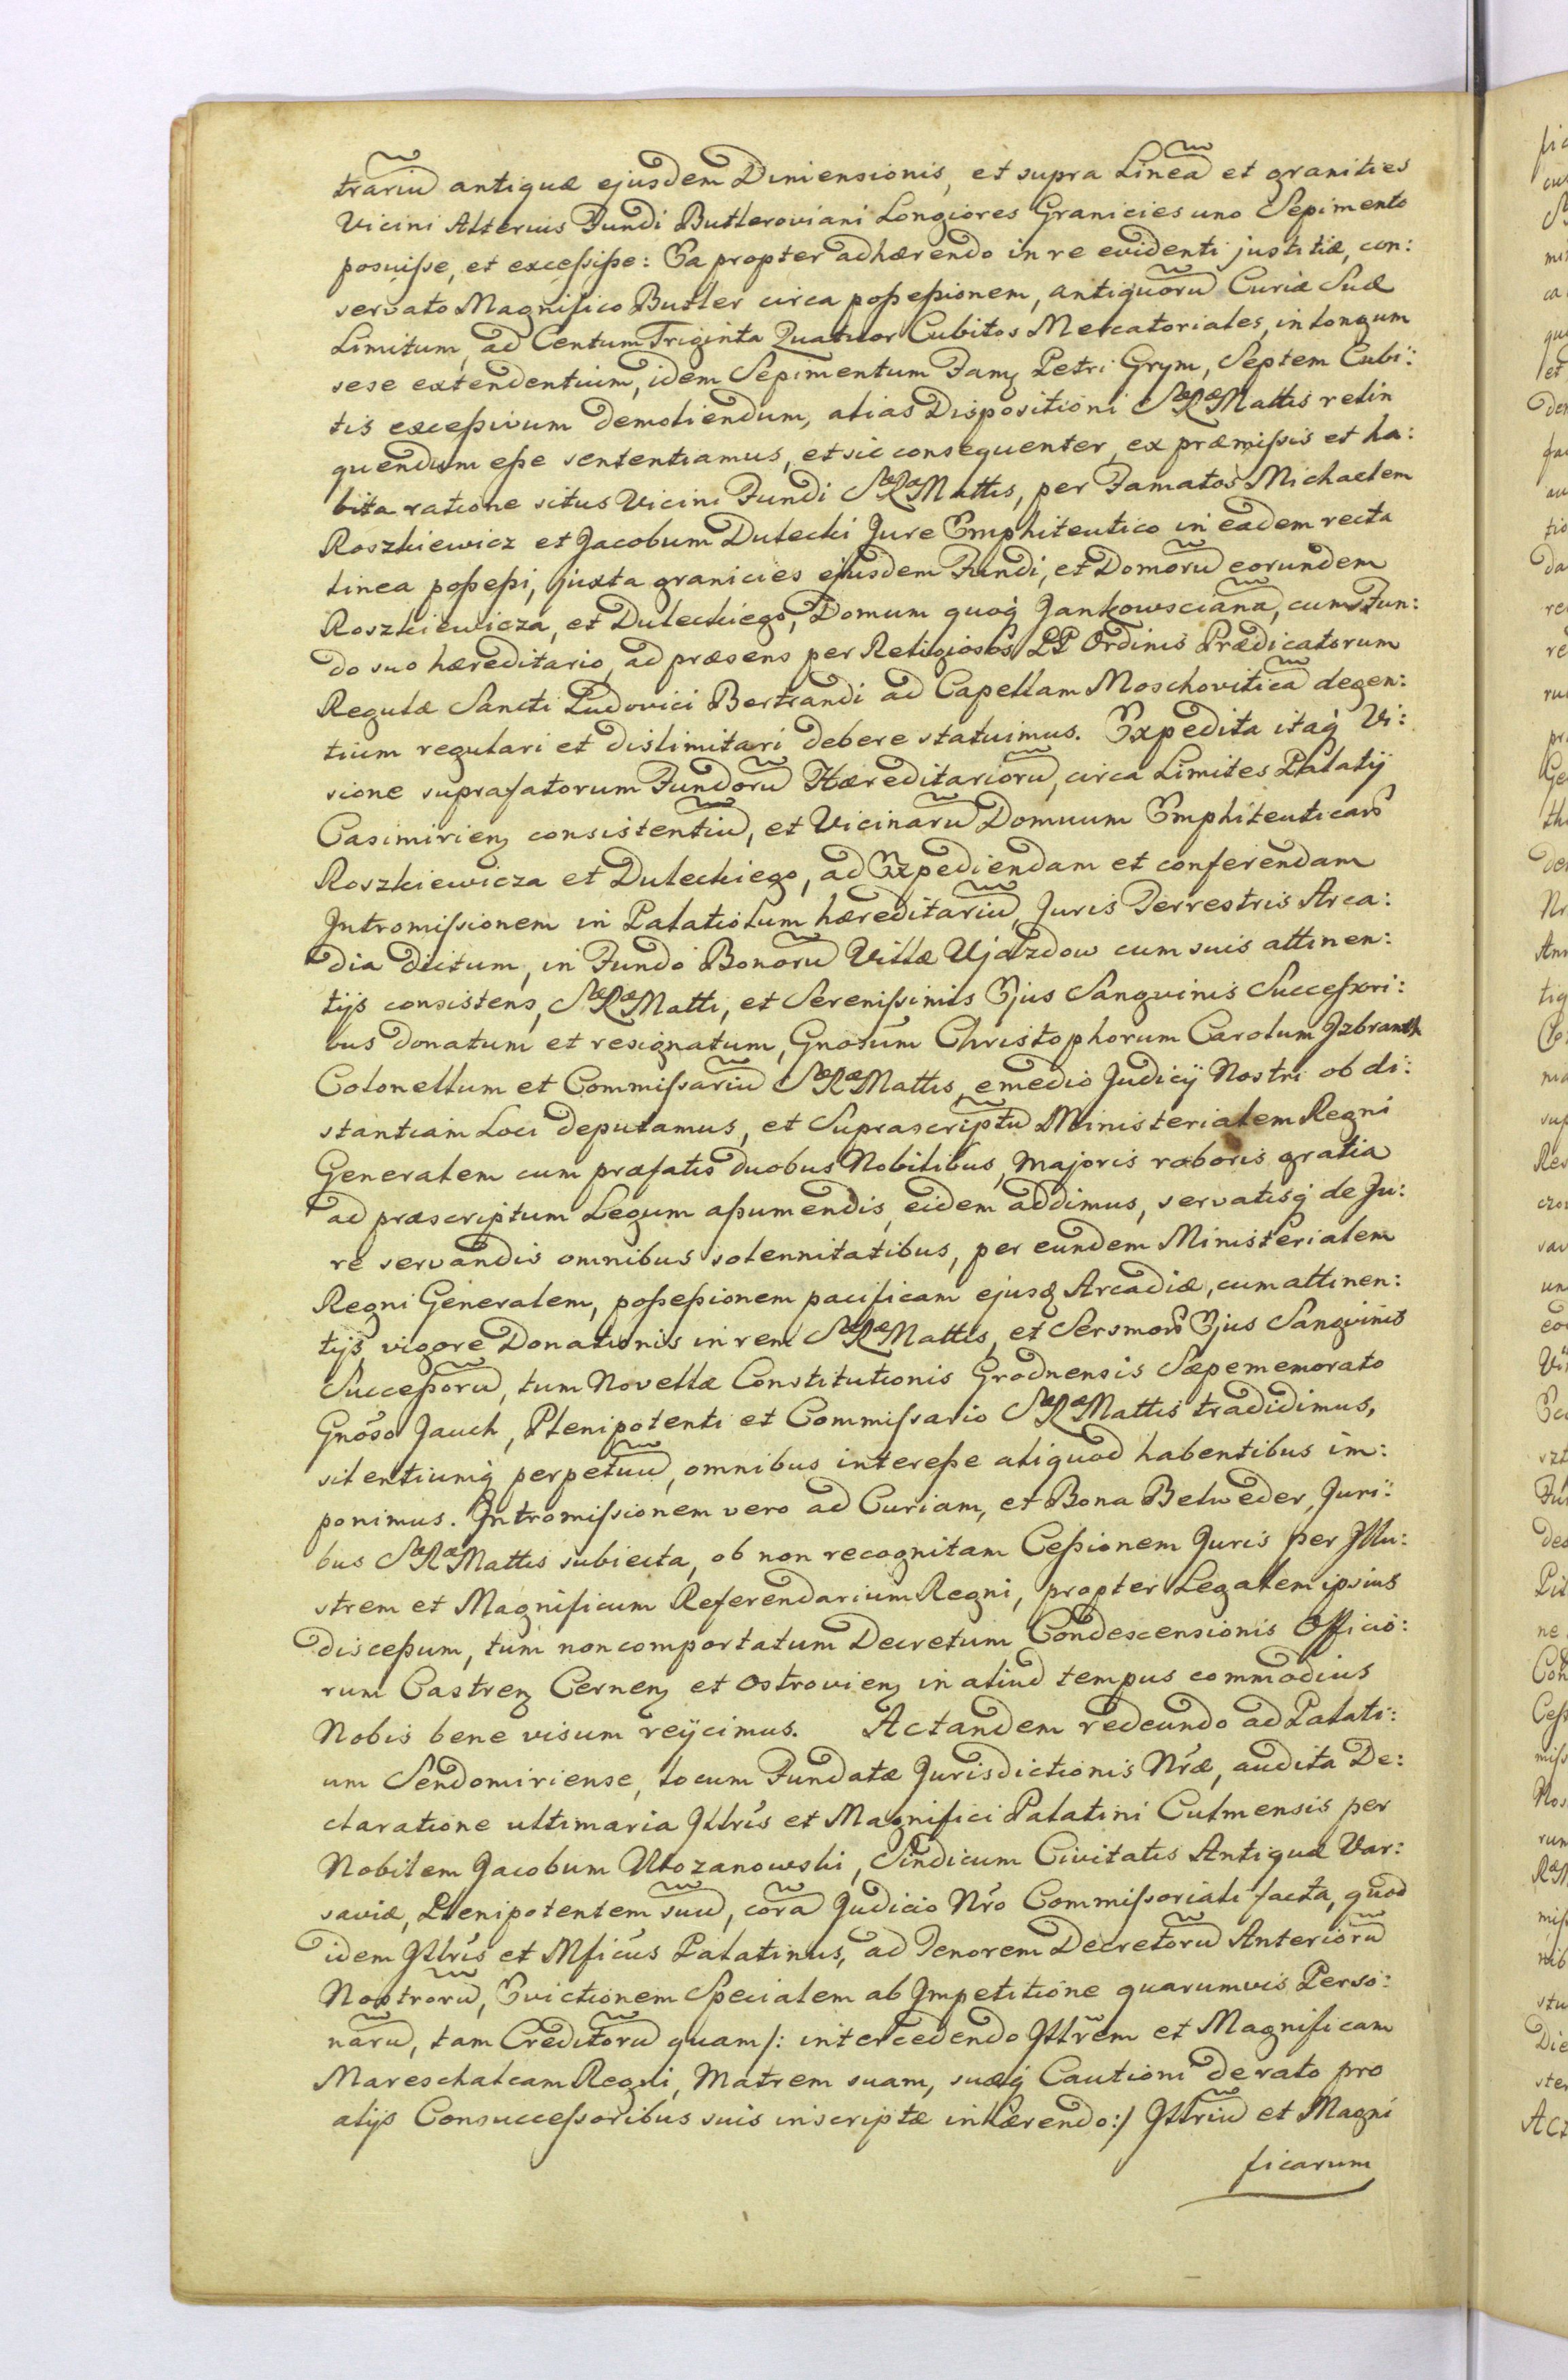 trariũ antiquæ ejusdem Dimensionis, et supra Lineã et granities
Vicini Alterius Fundi Butleroviani Longiores Granicies uno Sepimento
posuiſse, et exceſsiſse: Ea propter adhærendo in re evidenti justitiæ, con:
servato Magnifico Butler circa poſseſsionem, antiquorũ Curiæ Suæ
Limitum, ad Centum Triginta Quatuor Cubitos Mercatoriales, in longum
sese extendentium, idem Sepimentum Famꝫ Petri Grym, Septem Cubi:
tis exceſsivum demoliendum, alias Dispositioni Sæ Ræ Mattis relin
quendum eſse sententiamus, et sic consequenter, ex præmiſsis et ha:
bita ratione situs Vicini Fundi Sæ Ræ Mattis, per Famatos Michaelem
Roszkiewicz et Jacobum Dulecki Jure Emphiteutico in eadem recta
linea poſseſsi, juxta granicies ejusdem Fundi, et Domorũ eorundem
Roszkiewicza, et Duleckiego, Domum quoq̃ Jankowscianã, cum Fun:
do suo hæreditario, ad præsens per Religiosos PP Ordinis Prædicatorum
Regulæ Sancti Ludovici Bertrandi ad Capellam Moschoviticã degen:
tium regulari et dislimitari debere statuimus. Expedita itaq̃ Vi:
sione suprafatorum Fundorũ Hæreditariorũ, circa Limites Palatÿ
Casimirienꝫ consistentiũ, et Vicinarũ Domuum Emphiteuticarũ
Roszkiewicza et Duleckiego, ad Expediendam et conferendam
Intromiſsionem in Palatiolum hæreditariũ, Juris Terrestris Arca:
dia dictum, in Fundo Bonorũ Villæ Ujazdow cum suis attinen:
tÿs consistens, Sæ Ræ Matti, et Sereniſsimis Ejus Sangvinis Succeſsori:
bus donatum et resignatum, Gnosum Christophorum Carolum Jzbranth
Colonellum et Commiſsariũ Sæ Ræ Mattis, e medio Judicÿ Nostri ob di:
stantiam Loci deputamus, et Suprascriptũ Ministerialem Regni
Generalem cum præfatis duobus Nobilibus, majoris roboris gratia
ad præscriptum Legum aſsumendis, eidem addimus, servatisq̃ de Ju:
re servandis omnibus solennitatibus, per eundem Ministerialem
Regni Generalem, poſseſsionem pacificam ejusꝫ Arcadiæ, cum attinen:
tÿs vigore Donationis in rem Sæ Ræ Mattis, et Sersmorũ Ejus Sangvinis
Succeſsorũ, tum Novellæ Constitutionis Grodnensis Sæpememorato
Gnõso Jauch, Plenipotenti et Commiſsario Sæ Ræ Mattis tradidimus,
silentiumq̃ perpetuũ, omnibus intereſse aliquod habentibus im:
ponimus. Intromiſsionem vero ad Curiam, et Bona Belweder, Juri:
bus Sæ Ræ Mattis subiecta, ob non recognitam Ceſsionem Juris per Jllu:
strem et Magnificum Referendarium Regni, propter Legalem ipsius
disceſsum, tum non comportatum Decretum Condescensionis Officio:
rum Castrenꝫ Cernenꝫ et Ostrovienꝫ in aliud tempus commodius
Nobis bene visum reÿcimus. Ac tandem redeundo ad Palati:
um Sendomiriense, locum Fundatæ Jurisdictionis Nræ, audita De:
claratione ultimaria Jllris et Magnifici Palatini Culmensis per
Nobilem Jacobum Mrozanowski, Sindicum Civitatis Antiquæ Var:
saviæ, Plenipotentem suũ, corã Judicio Nro Commiſsoriali facta, quod
idem Jllris et Mficus Palatinus, ad Tenorem Decretorũ Anteriorũ
Nostrorũ, Evictionem Specialem ab Impetitione quarumvis Perso:
narũ, tam Creditorũ quam /: intercedendo Jllrem et Magnificam
Mareschalcam Regni, Matrem suam, suæq̃ Cautioni de rato pro
alÿs Consucceſsoribus suis inscriptæ inhærendo :/ Jllriũ et Magni
ficarum